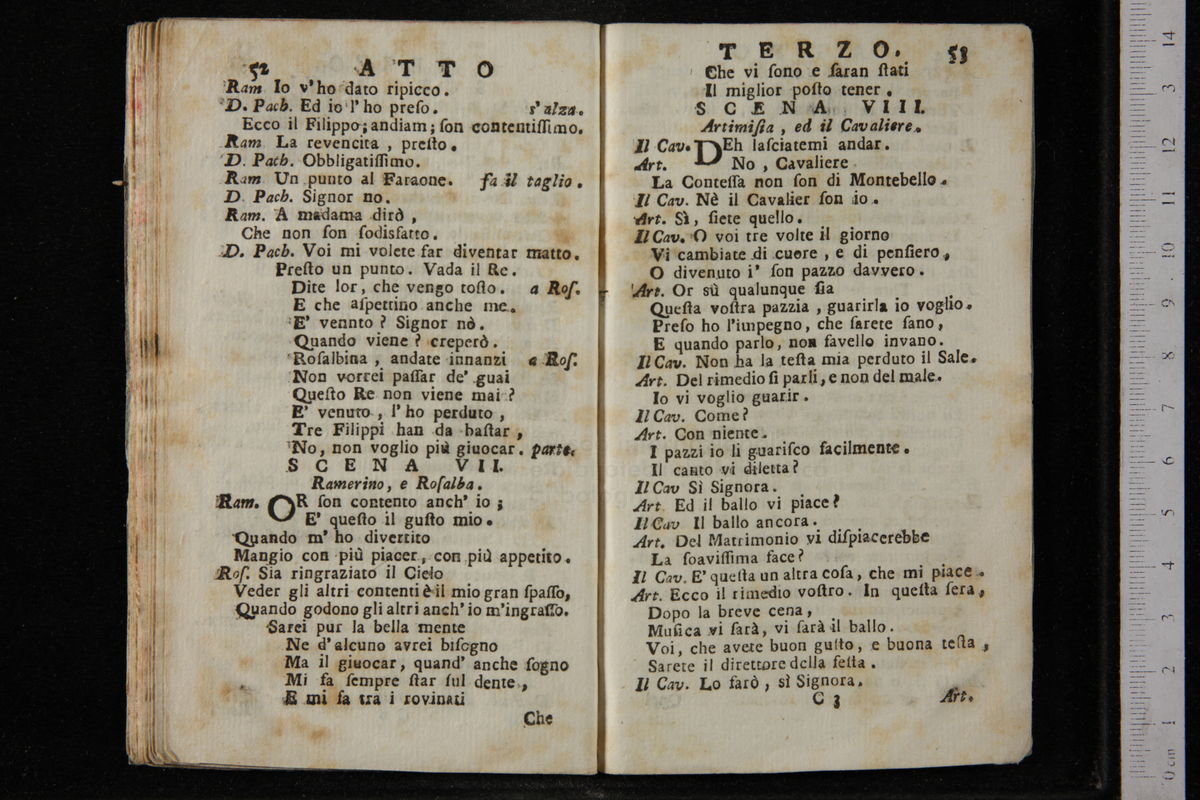 52 A T T O
Ram. Io v'ho dato ripicco.
D. Pach. Ed io l'ho preſo. s'alza.
Ecco il Filippo; andiam; ſon contentiſſimo.
Ram. La revencita, preſto.
D. Pach. Obbligatiſſimo.
Ram. Un punto al Faraone. fa il taglio.
D. Pach. Signor no.
Ram. A madama dirò,
Che non ſon ſodisfatto.
D. Pach. Voi mi volete far diventar matto.
Preſto un punto. Vada il Re.
Dite lor, che vengo toſto. a Roſ.
E che aſpettino anche me.
E' vennto? Signor nò.
Quando viene? creperò.
Roſalbina, andate innanzi a Roſ.
Non vorrei paſſar de' guai
Queſto Re non viene mai?
E' venuto, l'ho perduto,
Tre Filippi han da baſtar,
No, non voglio più giuocar. parte.
S C E N A VII.
Ramerino, e Roſalba.
Ram. OR ſon contento anch' io;
E' queſto il guſto mio.
Quando m' ho divertito
Mangio con più piacer, con più appetito.
Roſ. Sia ringraziato il Cielo
Veder gli altri contenti è il mio gran ſpaſſo,
Quando godono gli altri anch' io m'ingraſſo.
Sarei pur la bella mente
Ne d'alcuno avrei biſogno
Ma il giuocar, quand' anche ſogno
Mi fa ſempre ſtar ſul dente,
E mi fa tra i rovinati
Che
T E R Z O. 53
Che vi ſono e ſaran ſtati
Il miglior poſto tener.
S C E N A VIII.
Artimiſia, ed il Cavaliere.
Il Cav. DEh laſciatemi andar.
Art. No, Cavaliere
La Conteſſa non ſon di Montebello.
Il Cav. Nè il Cavalier ſon io.
Art. Sì, ſiete quello.
Il Cav. O voi tre volte il giorno
Vi cambiate di cuore, e di penſiero,
O divenuto i' ſon pazzo davvero.
Art. Or sù qualunque ſia
Queſta voſtra pazzia, guarirla io voglio.
Preſo ho l'impegno, che ſarete ſano,
E quando parlo, non favello invano.
Il Cav. Non ha la teſta mia perduto il Sale.
Art. Del rimedio ſi parli, e non del male.
Io vi voglio guarir.
Il Cav. Come?
Art. Con niente.
I pazzi io li guariſco facilmente.
Il canto vi diletta?
Il Cav Sì Signora.
Art Ed il ballo vi piace?
Il Cav Il ballo ancora.
Art. Del Matrimonio vi diſpiacerebbe
La ſoaviſſima face?
Il Cav. E' queſta un altra coſa, che mi piace.
Art. Ecco il rimedio voſtro. In queſta ſera,
Dopo la breve cena,
Muſica vi ſarà, vi ſarà il ballo.
Voi, che avete buon guſto, e buona teſta,
Sarete il direttore della feſta.
Il Cav. Lo farò, sì Signora.
C 3 Art.
14
13
12
11
10
9
8
7
6
5
4
3
2
1
0 cm